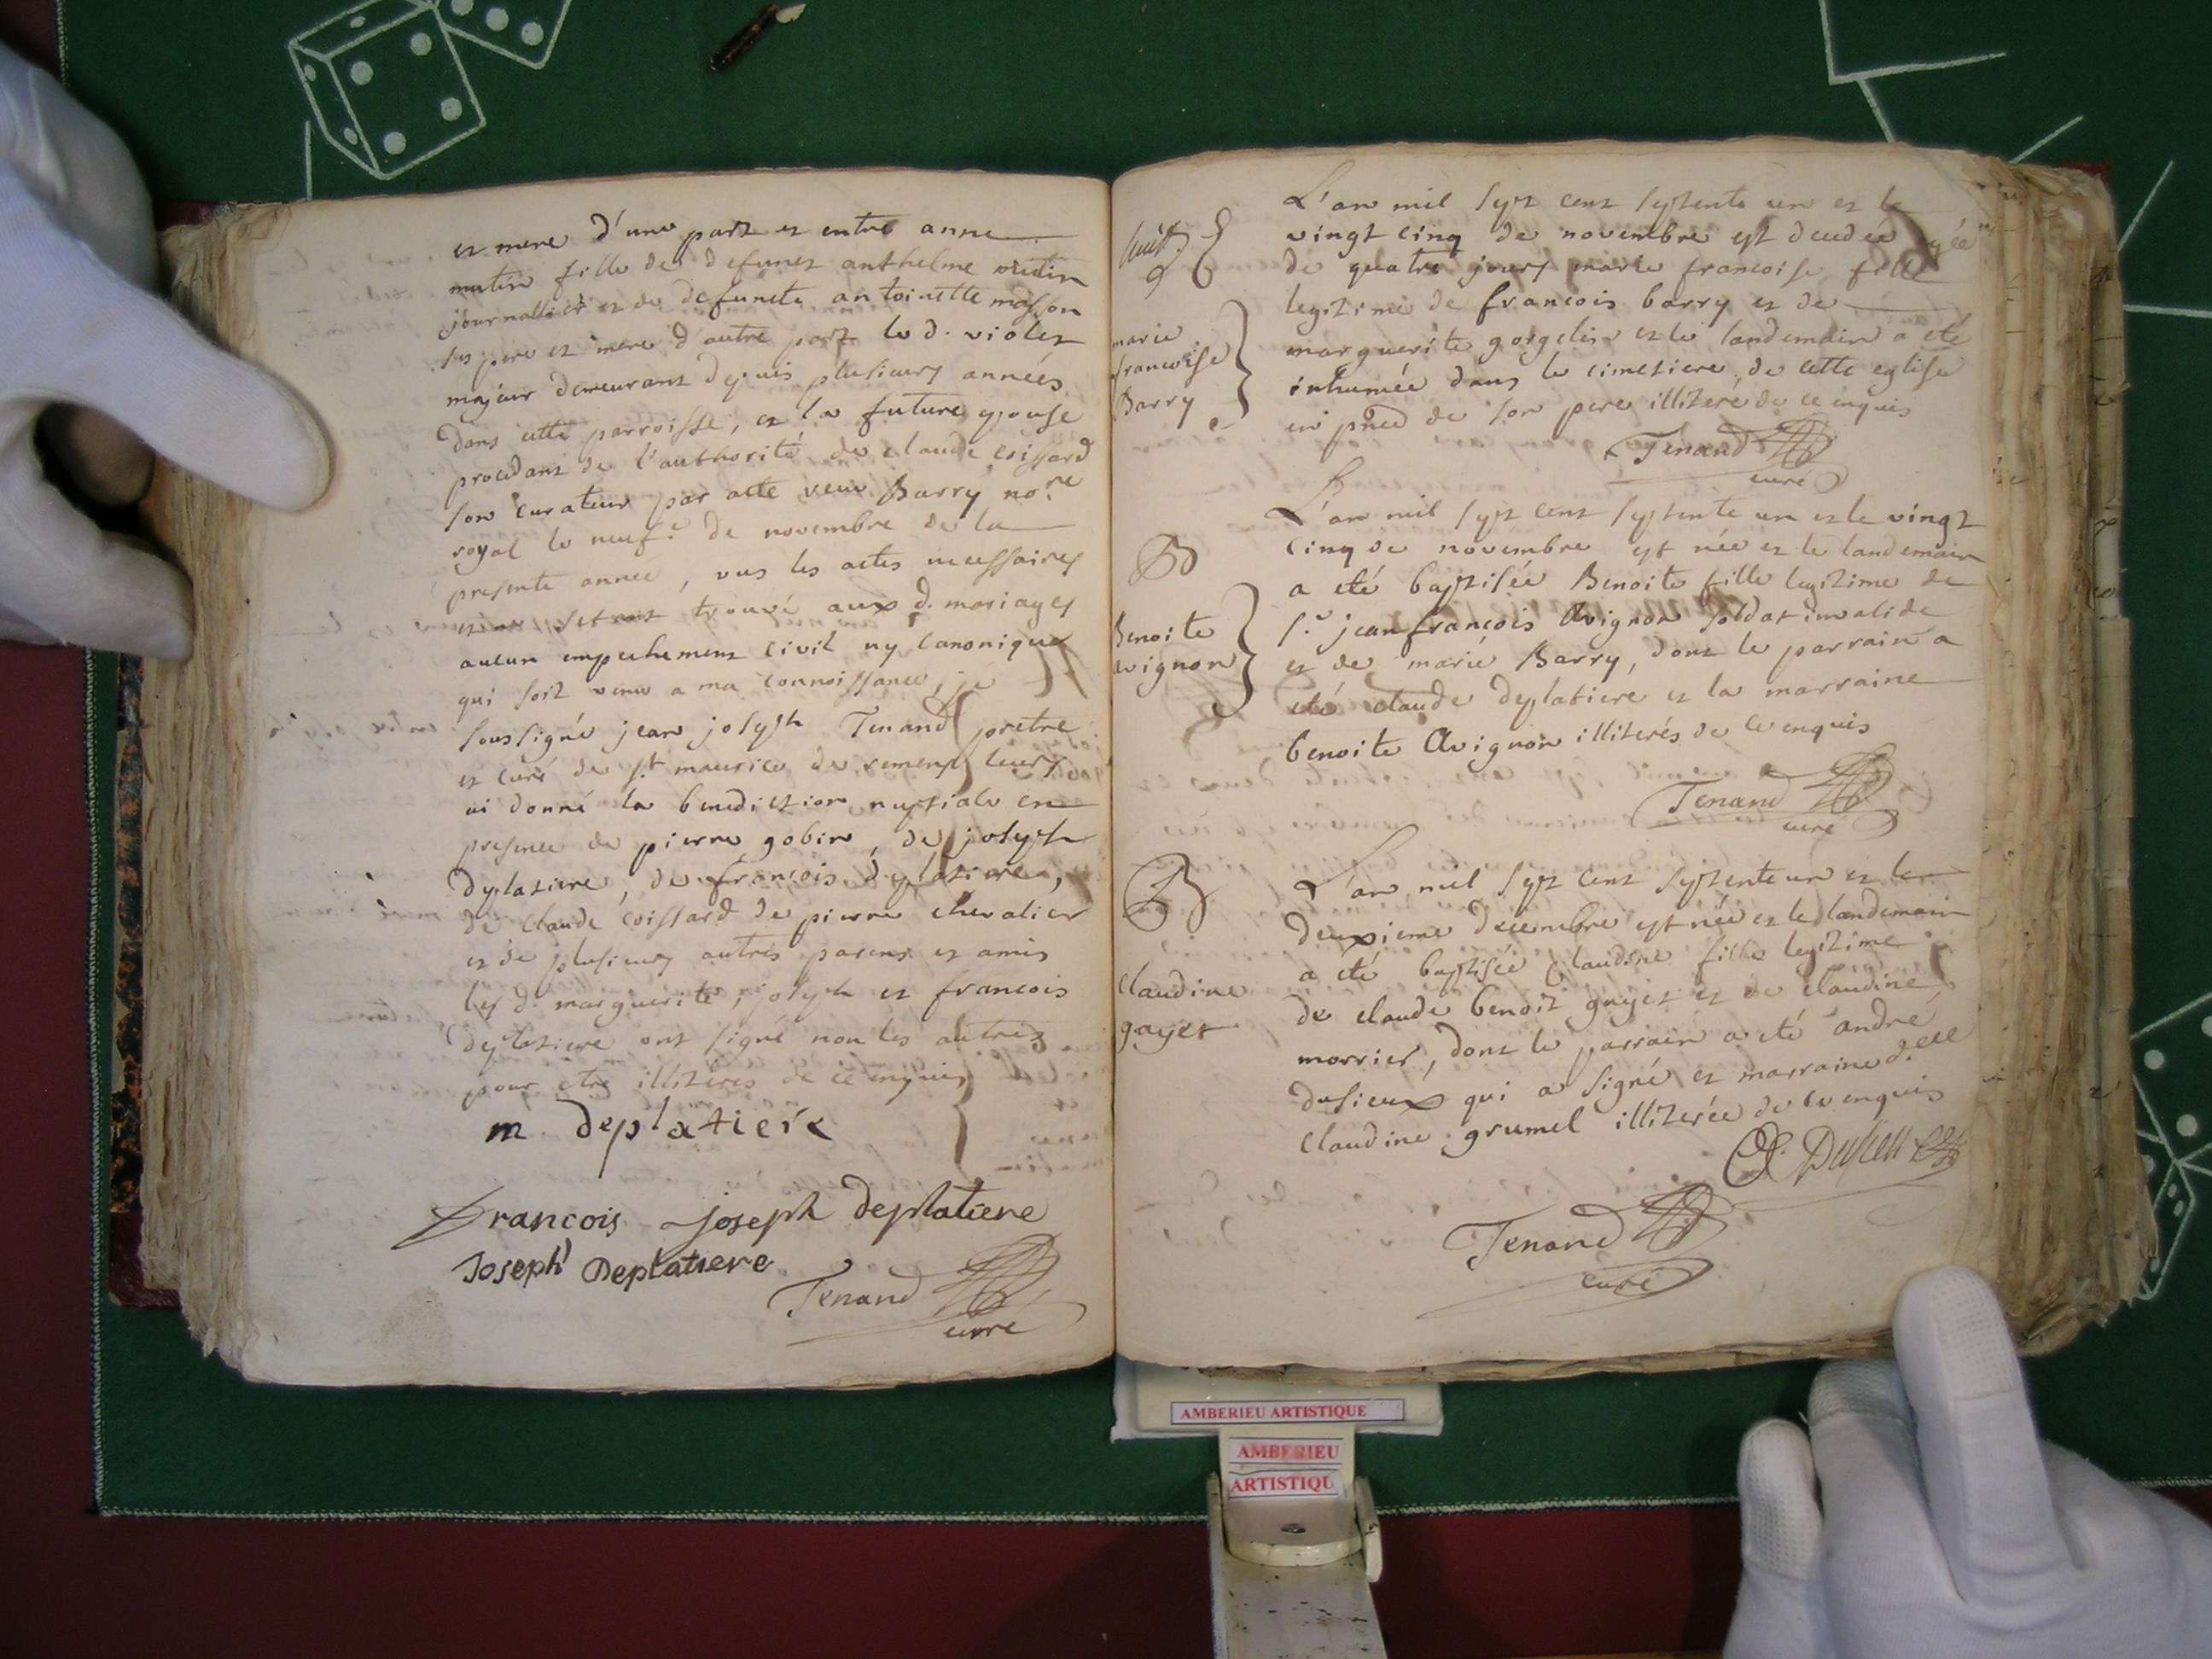 et mere d'une part et entre anne
mutin fille de defunct anthelme mutin
journallier et de defuncte antoinette masson
ses pere et mere d'autre part le d. violet
majeur demeurant depuis plusieurs années
dans cette parroisse, et la future epouse
procedant de l'authorité de claude coissard
son curateur par acte reçu Barry no.re
royal le neuf.e de novembre de la
presente année, vus les actes necessaires
et ne s'etant trouvé aux d. mariages
aucun empechement civil ny canonique
qui soit venu a ma connoissance, je
soussigné jean joseph Tenand pretre
et curé de s.t maurice de remens leurs
ai donné la benediction nuptiale en
presence de pierre gobin, de joseph
deplatiere, de françois deplatiere,
de claude coissard de pierre chevalier
et de plusieurs autres parens et amis
les d. marguerite, joseph et francois
deplatiere ont signé non les autres
pour etre illiterés de ce enquis
m deplatiere
francois joseph deplatiere
Joseph Deplatiere
Tenand
curé
L'an mil sept cent septente un et le
vingt cinq de novembre est decedée agée
de quatre jours marie francoise fille
legitime de francois barry et de
marguerite gorgelin et le landemain a eté
inhumée dans le cimetiere de cette eglise
en pnce de son pere illiteré de ce enquis
marie
francoise
Barry
Tenand
curé
L'an mil sept cent septente un et le vingt
cinq de novembre est née et le landemain
a eté baptisée Benoite fille legitime de
s.r jean françois Avignon soldat invalide
et de marie Barry, dont le parrain a
eté claude deplatiere et la marraine
benoite Avignon illiterés de ce enquis
B
Benoite
avignon
Tenand
curé
L'an mil sept cent septente un et le
deuxieme decembre est née et le landemain
a eté baptisée Claudine fille legitime
de claude benoit gayet et de claudine
morrier, dont le parrain a eté andré
dusieux qui a signé et marraine d.elle
claudine grumel illiterée de ce enquis
B
claudine
gayet
Tenand
curé
AMBERIEU ARTISTIQUE
AMBERIEU
ARTISTIQU